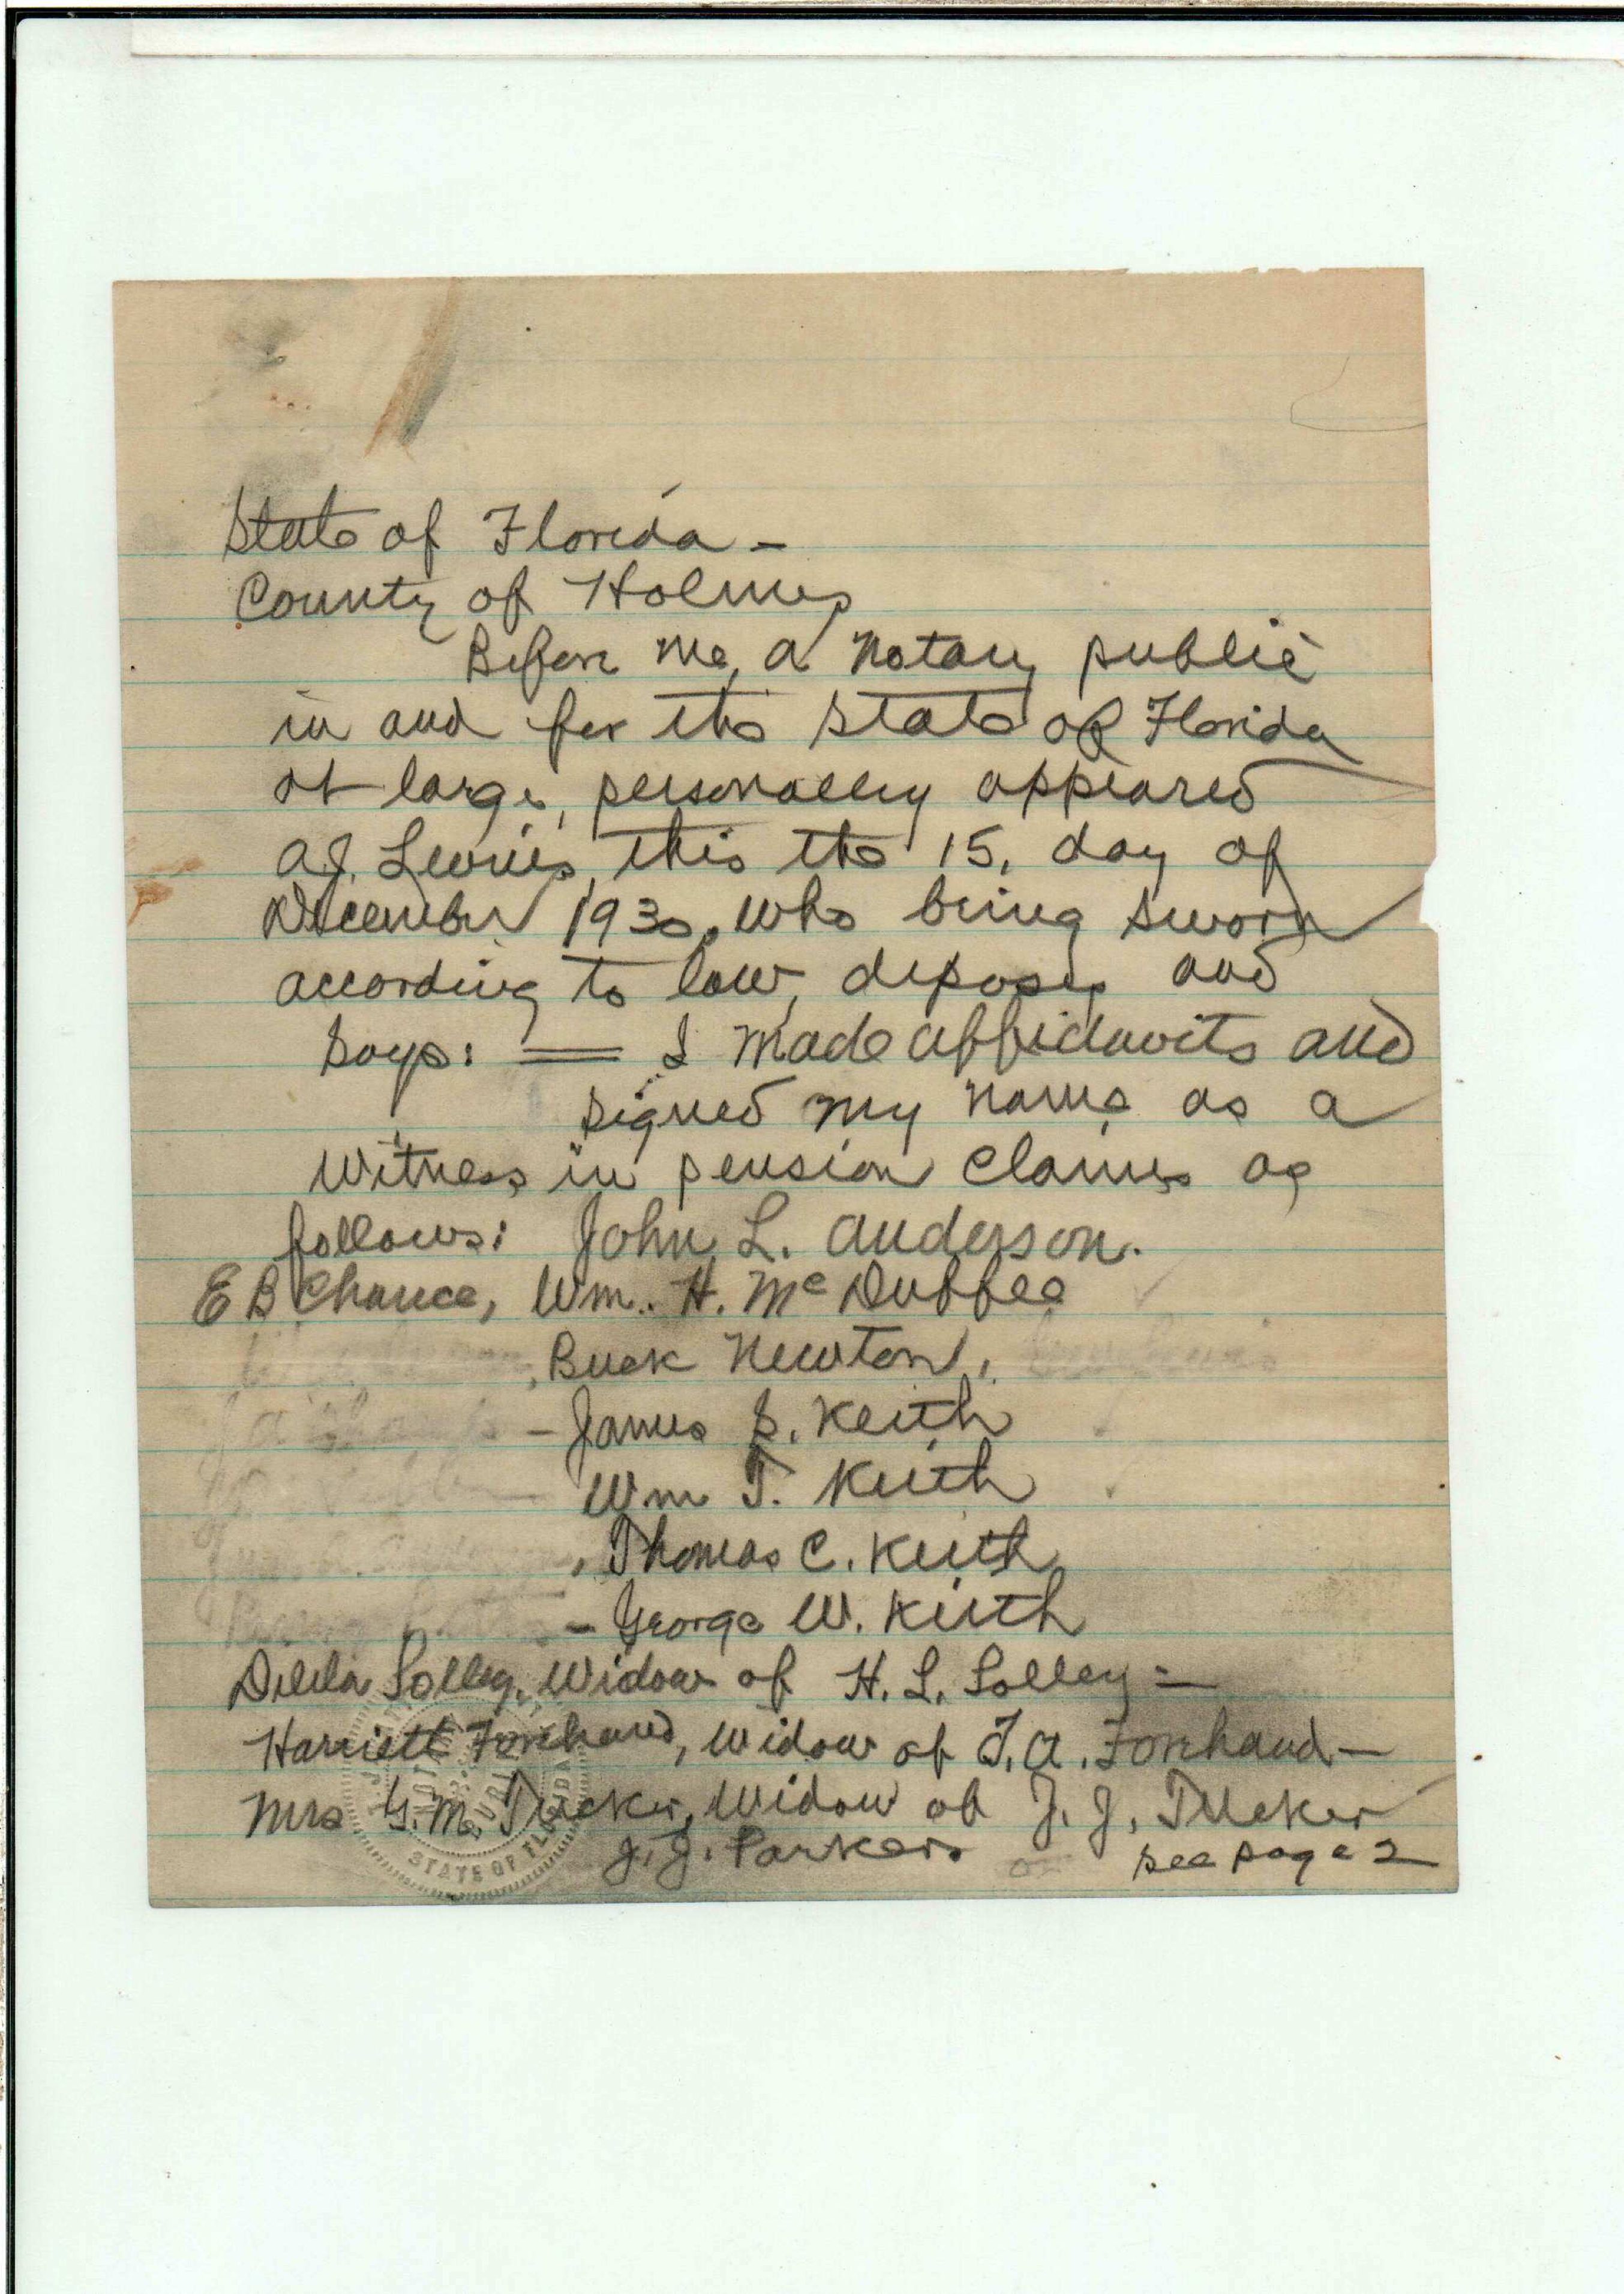 State of Florida -
County of Holmes
Before me, a notary public
in and for the State of Florida
at large, personally appeared
A.J. Lewis, this the 15, day of
December 1930, who being sworn
according to law, deposes and
says: — I made affidavits and
signed my name as a
witness in pension claims as
follows: John L. Anderson.
E B Chance, Wm. H. McDuffee
Buck Newton,
- James S. Keith
Wm T. Keith
, Thomas C. Keith
- George W. Keith
Delila Solley, Widow of H. L. Solley -
Harriett Forehand, Widow of T. A. Forehand -
Mrs G. M. Tucker, Widow of J. J. Tucker
J. J. Parker.
see page 2
STATE OF FLORIDA